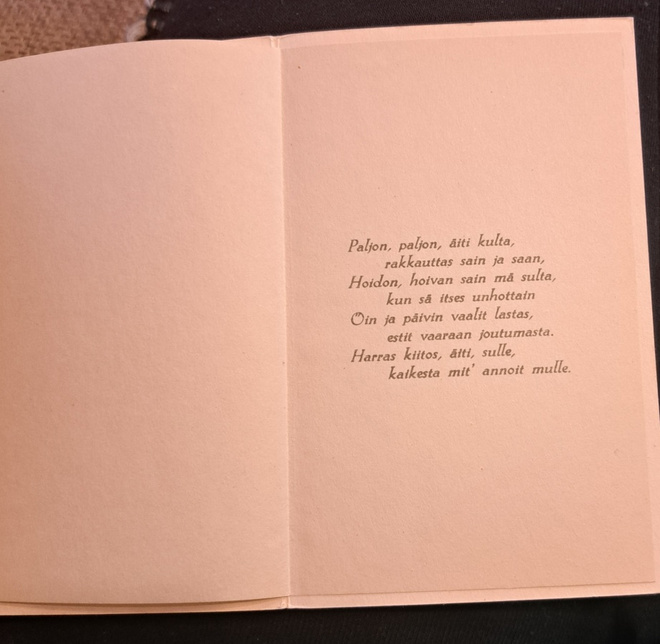 Paljon, paljon, äiti kulta,
rakkauttas sain ja saan,
Hoidon, hoivan sain mä sulta,
kun sä itses unhottain
Öin ja päivin vaalit lastas,
estit vaaraan joutumasta.
Harras kiitos, äiti, sulle,
kaikesta mit' annoit mulle.